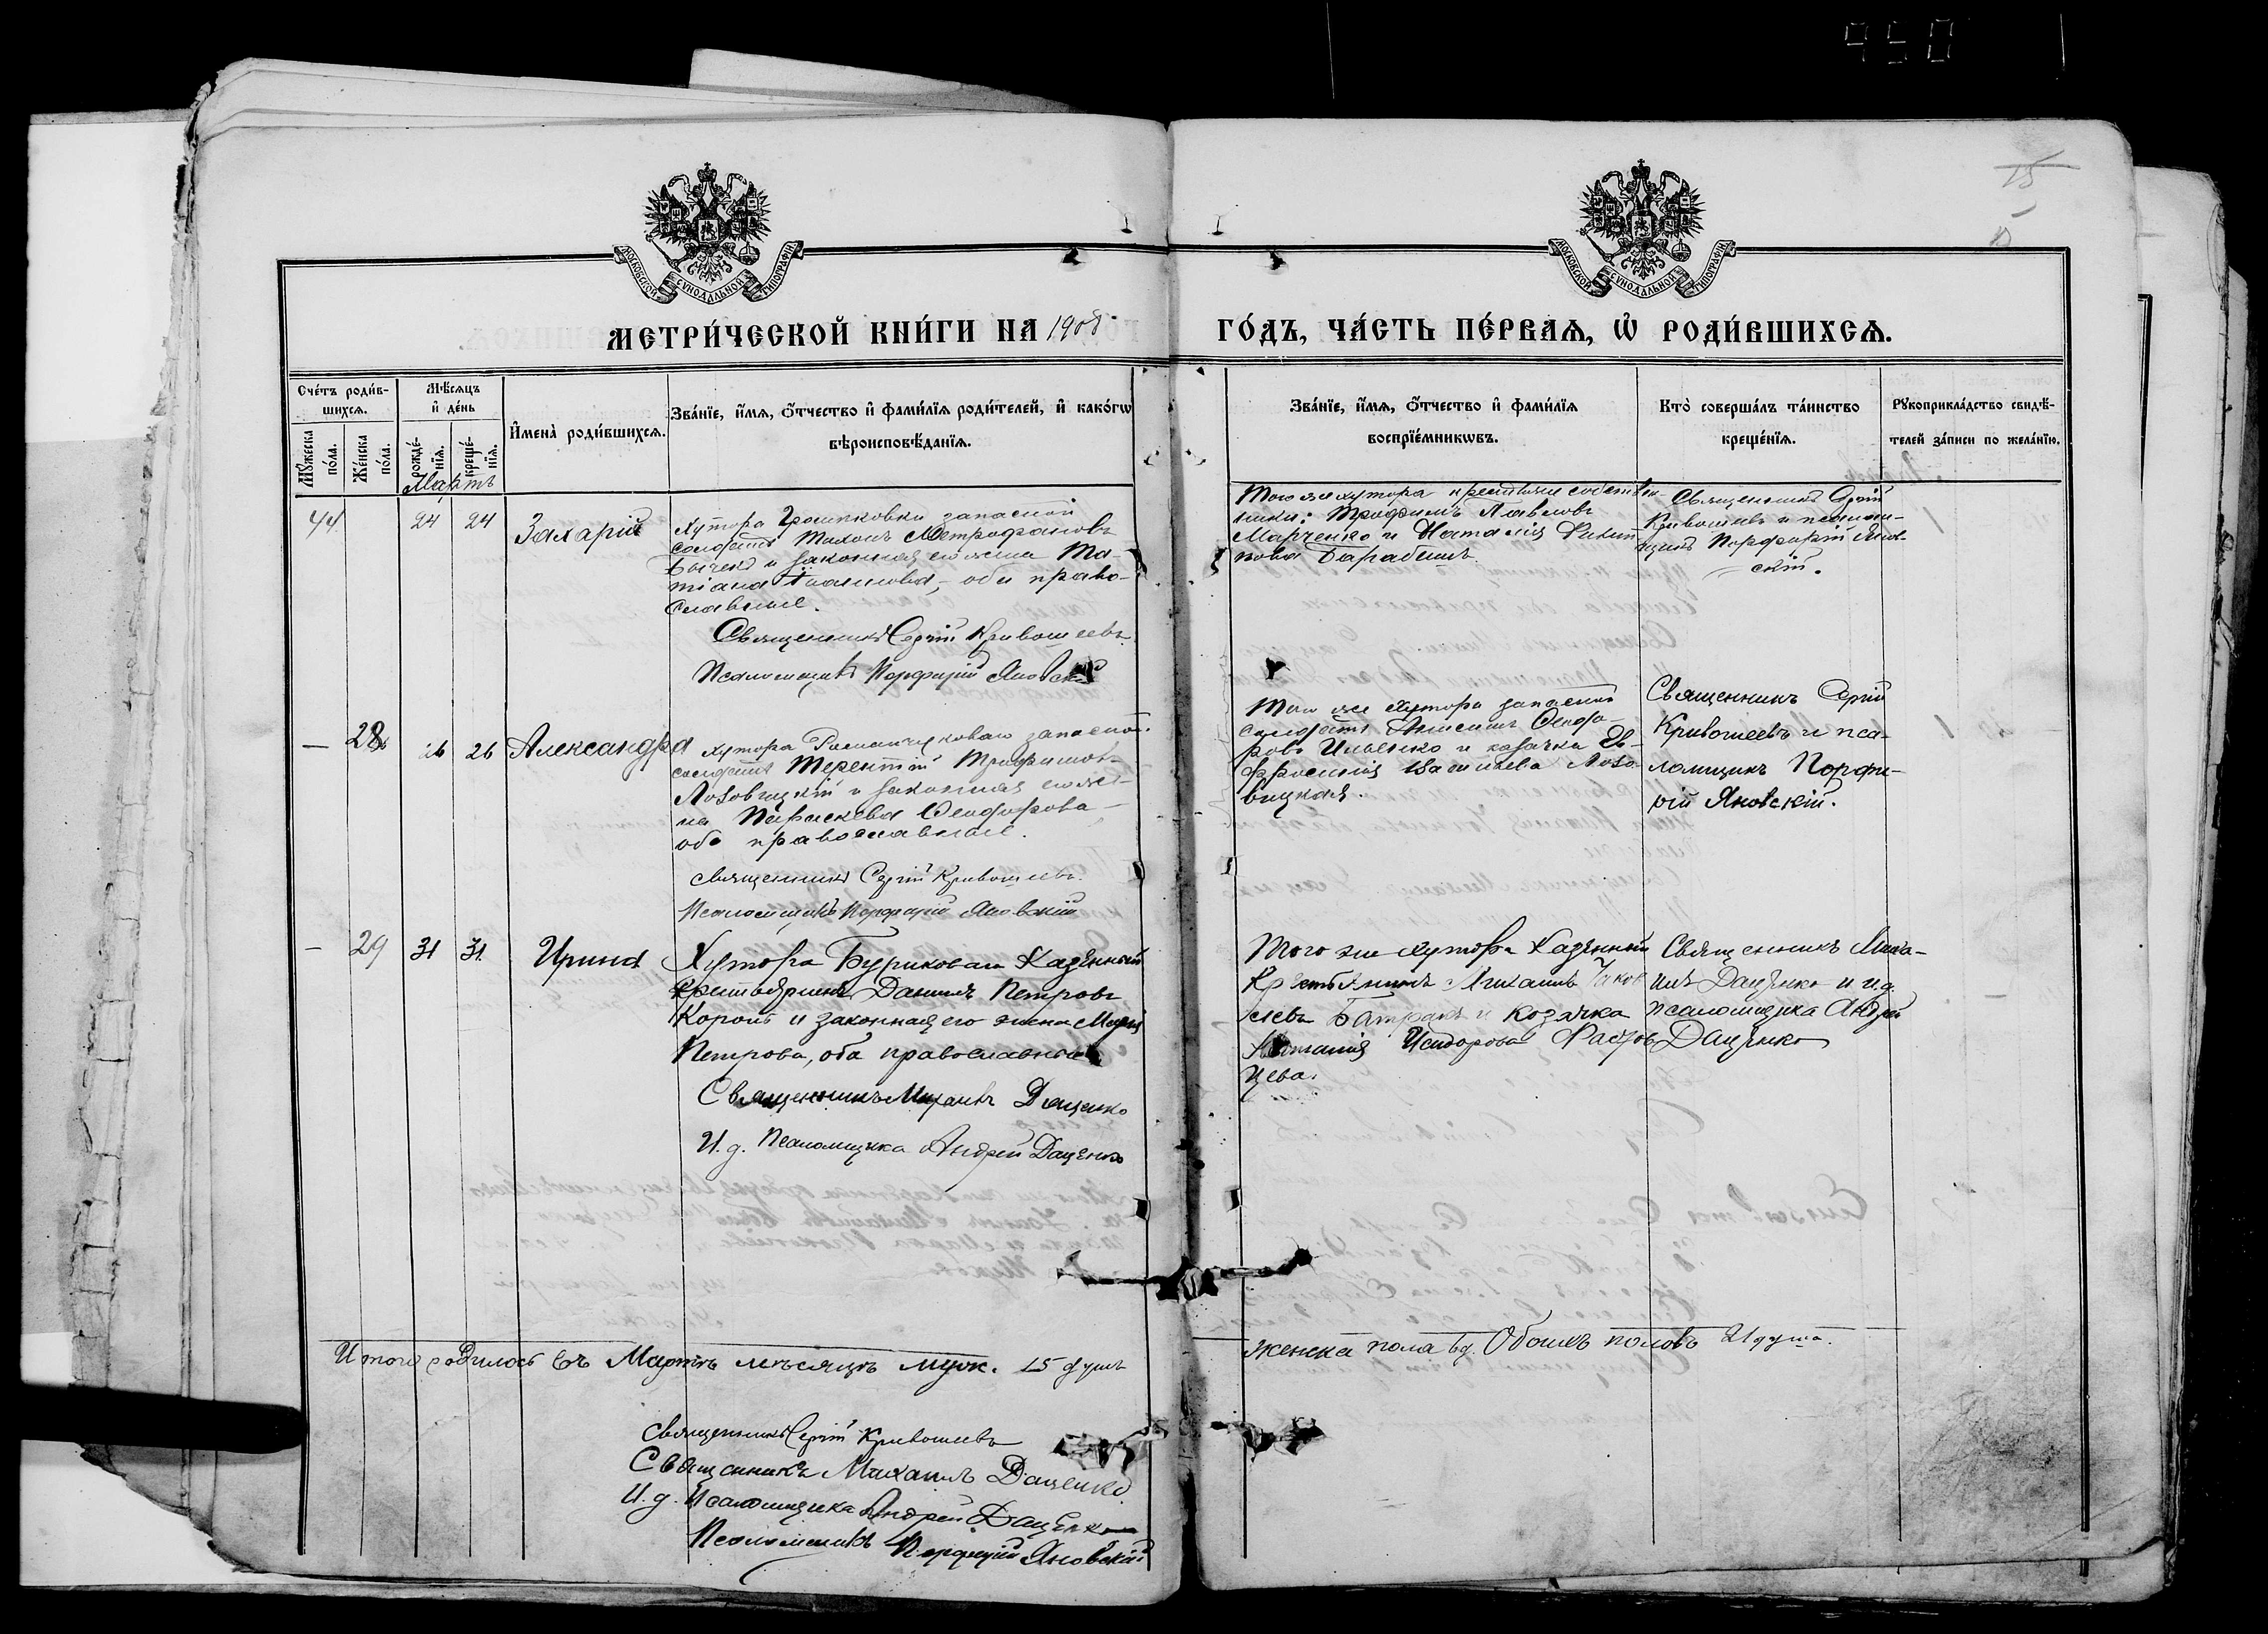 950
15
МОСКОВСКОЙ СУНОДАЛЬНОЙ ТИПОГРАФІИ
МОСКОВСКОЙ СУНОДАЛЬНОЙ ТИПОГРАФІИ
МЕТРИ́ЧЕСКОЙ КНИ́ГИ НА 1908
ГО́ДЪ, ЧА́СТЬ ПЕ́РВАѦ, Ѡ҆ РОДИ́ВШИХСѦ.
Сче́тъ роди́в-
шихсѧ.
Мꙋ́жеска
по́ла.
Же́нска
по́ла.
Мѣ́сѧцъ
и҆ де́нь
рожде́-
нїѧ.
креще́-
нїѧ.
И҆мена̀ роди́вшихсѧ.
Зва́нїе, и҆́мѧ, ѻ҆́тчество и҆ фами́лїѧ роди́телей, и҆ како́гѡ
вѣроисповѣ́данїѧ.
Зва́нїе, и҆́мѧ, ѻ҆́тчество и҆ фами́лїѧ
воспрїе́мникѡвъ.
Кто̀ соверша́лъ та́инство
креще́нїѧ.
Рꙋкоприкла́дство свидѣ́-
телей за́писи по жела́нїю.
Мартъ
44
24 24
Захарій
Хутора запасной
солдатъ Тихонъ Митрофановъ
и законная его жена Та-
тіана оба право-
славные.
Священникъ Сергій Кривошеевъ
Псаломщикъ Порфирій Яновскій
Того же хутора крестьяне собствен-
ники: Трофимъ Павловъ
Марченко и Наталія Филип-
пова Барабашъ.
Священникъ Сергій
Кривошеевъ и псалом-
щикъ Порфирій Янов-
скій.
— 28
26 26
Александра
Хутора запасной
солдатъ Терентій Трофимовъ
Лозовицкій и законная его же-
на Параскева Феодорова —
оба православные.
Священникъ Сергій Кривошеевъ.
Псаломщикъ Порфирій Яновскій
Того же хутора запасный
солдатъ Феодо-
ровъ Ильенко и казачка Ев-
фросинія Лозо-
вицкая.
Священникъ Сергій
Кривошеевъ и пса-
ломщикъ Порфи-
рій Яновскій.
— 29
31 31
Ирина
Хутора Бурикова Казенный
крестьянинъ Даніилъ Петровъ
Король и законная его жена Марія
Петрова, оба православные
Священникъ Михаилъ Даценко
И. д. Псаломщика Андрей Даценко
Того же хутора Казенный
Крестьянинъ Михаилъ Яков
левъ Батракъ и козачка
Наталія Исидорова
цева.
Священникъ Миха-
илъ Даценко и и.д.
псаломщика Андрей
Даценко
Итого родилось въ Мартѣ мѣсяцѣ муж. 15 душъ
женска пола 6 д. Обоихъ половъ 21 душа.
Священникъ Сергій Кривошеевъ
Священникъ Михаилъ Даценко
И. д. Псаломщика Андрей Даценко
Псаломщикъ Порфирій Яновскій